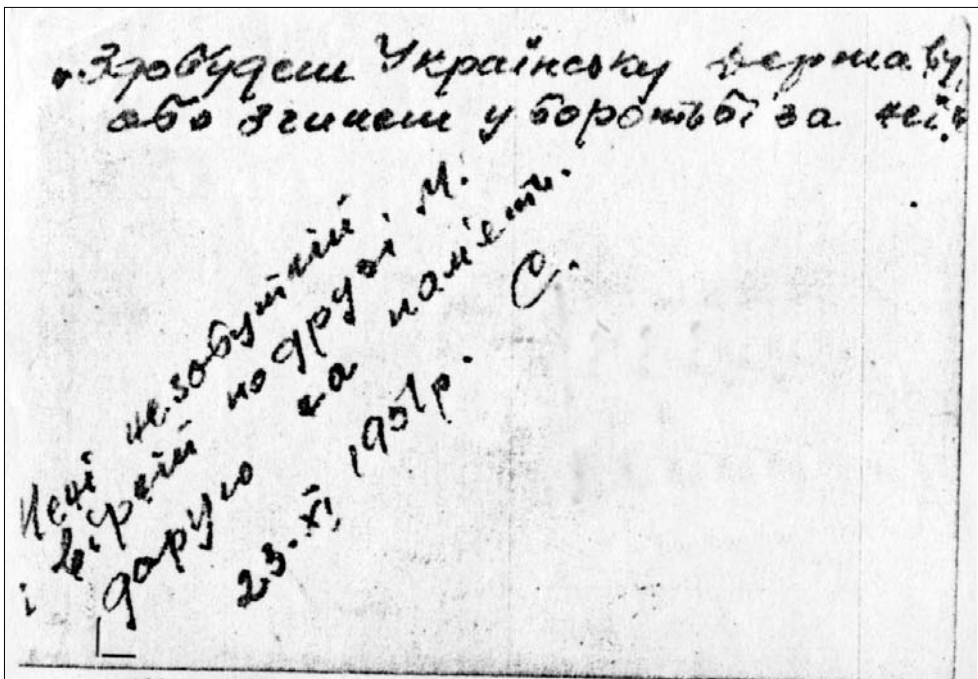 „Здобудеш Українську державу,
або згинеш у боротьбі за неї."
незабутній
і вірній подрузі М.
дарую на пам'ять.
23. XI 1951р. С.